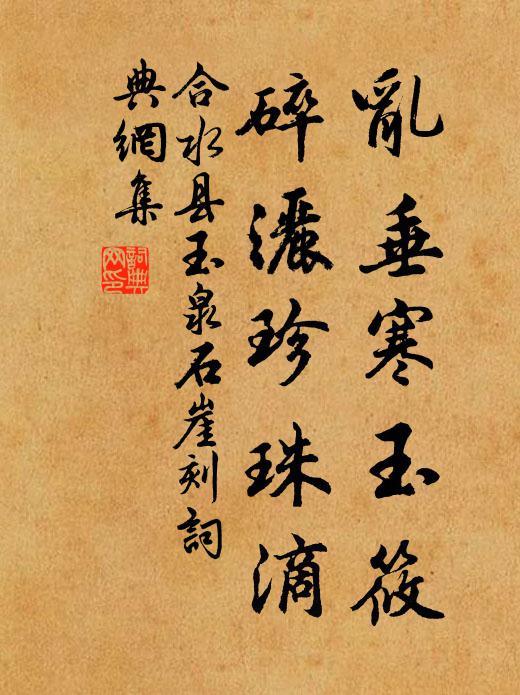 亂垂寒玉筱
碎灑珍珠滴
合水县玉泉石崖刻詞
典網集
詞典
网印